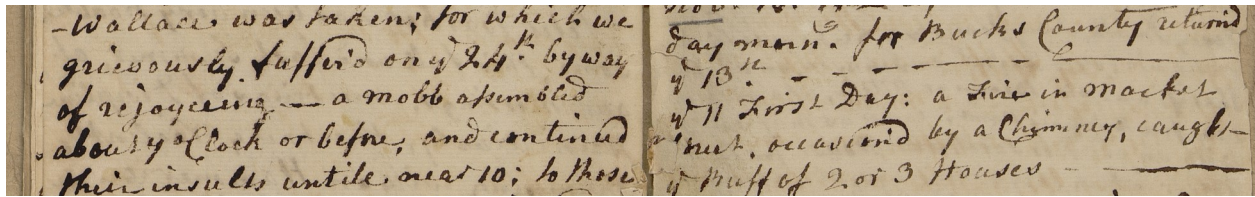 -Wallace was taken; for which we
grievously suffer'd on yᵉ 24ᵗʰ by way
of rejoyceing — a mobb assembled
about 7 oClock or before, and continued
their insults untile near 10; to those
day morn. for Bucks County return'd
yᵉ 13ᵗʰ
yᵉ 11 First Day: a Fire in Market
occasion'd by a Chimney, caught
yᵉ Ruff of 2 or 3 Houses